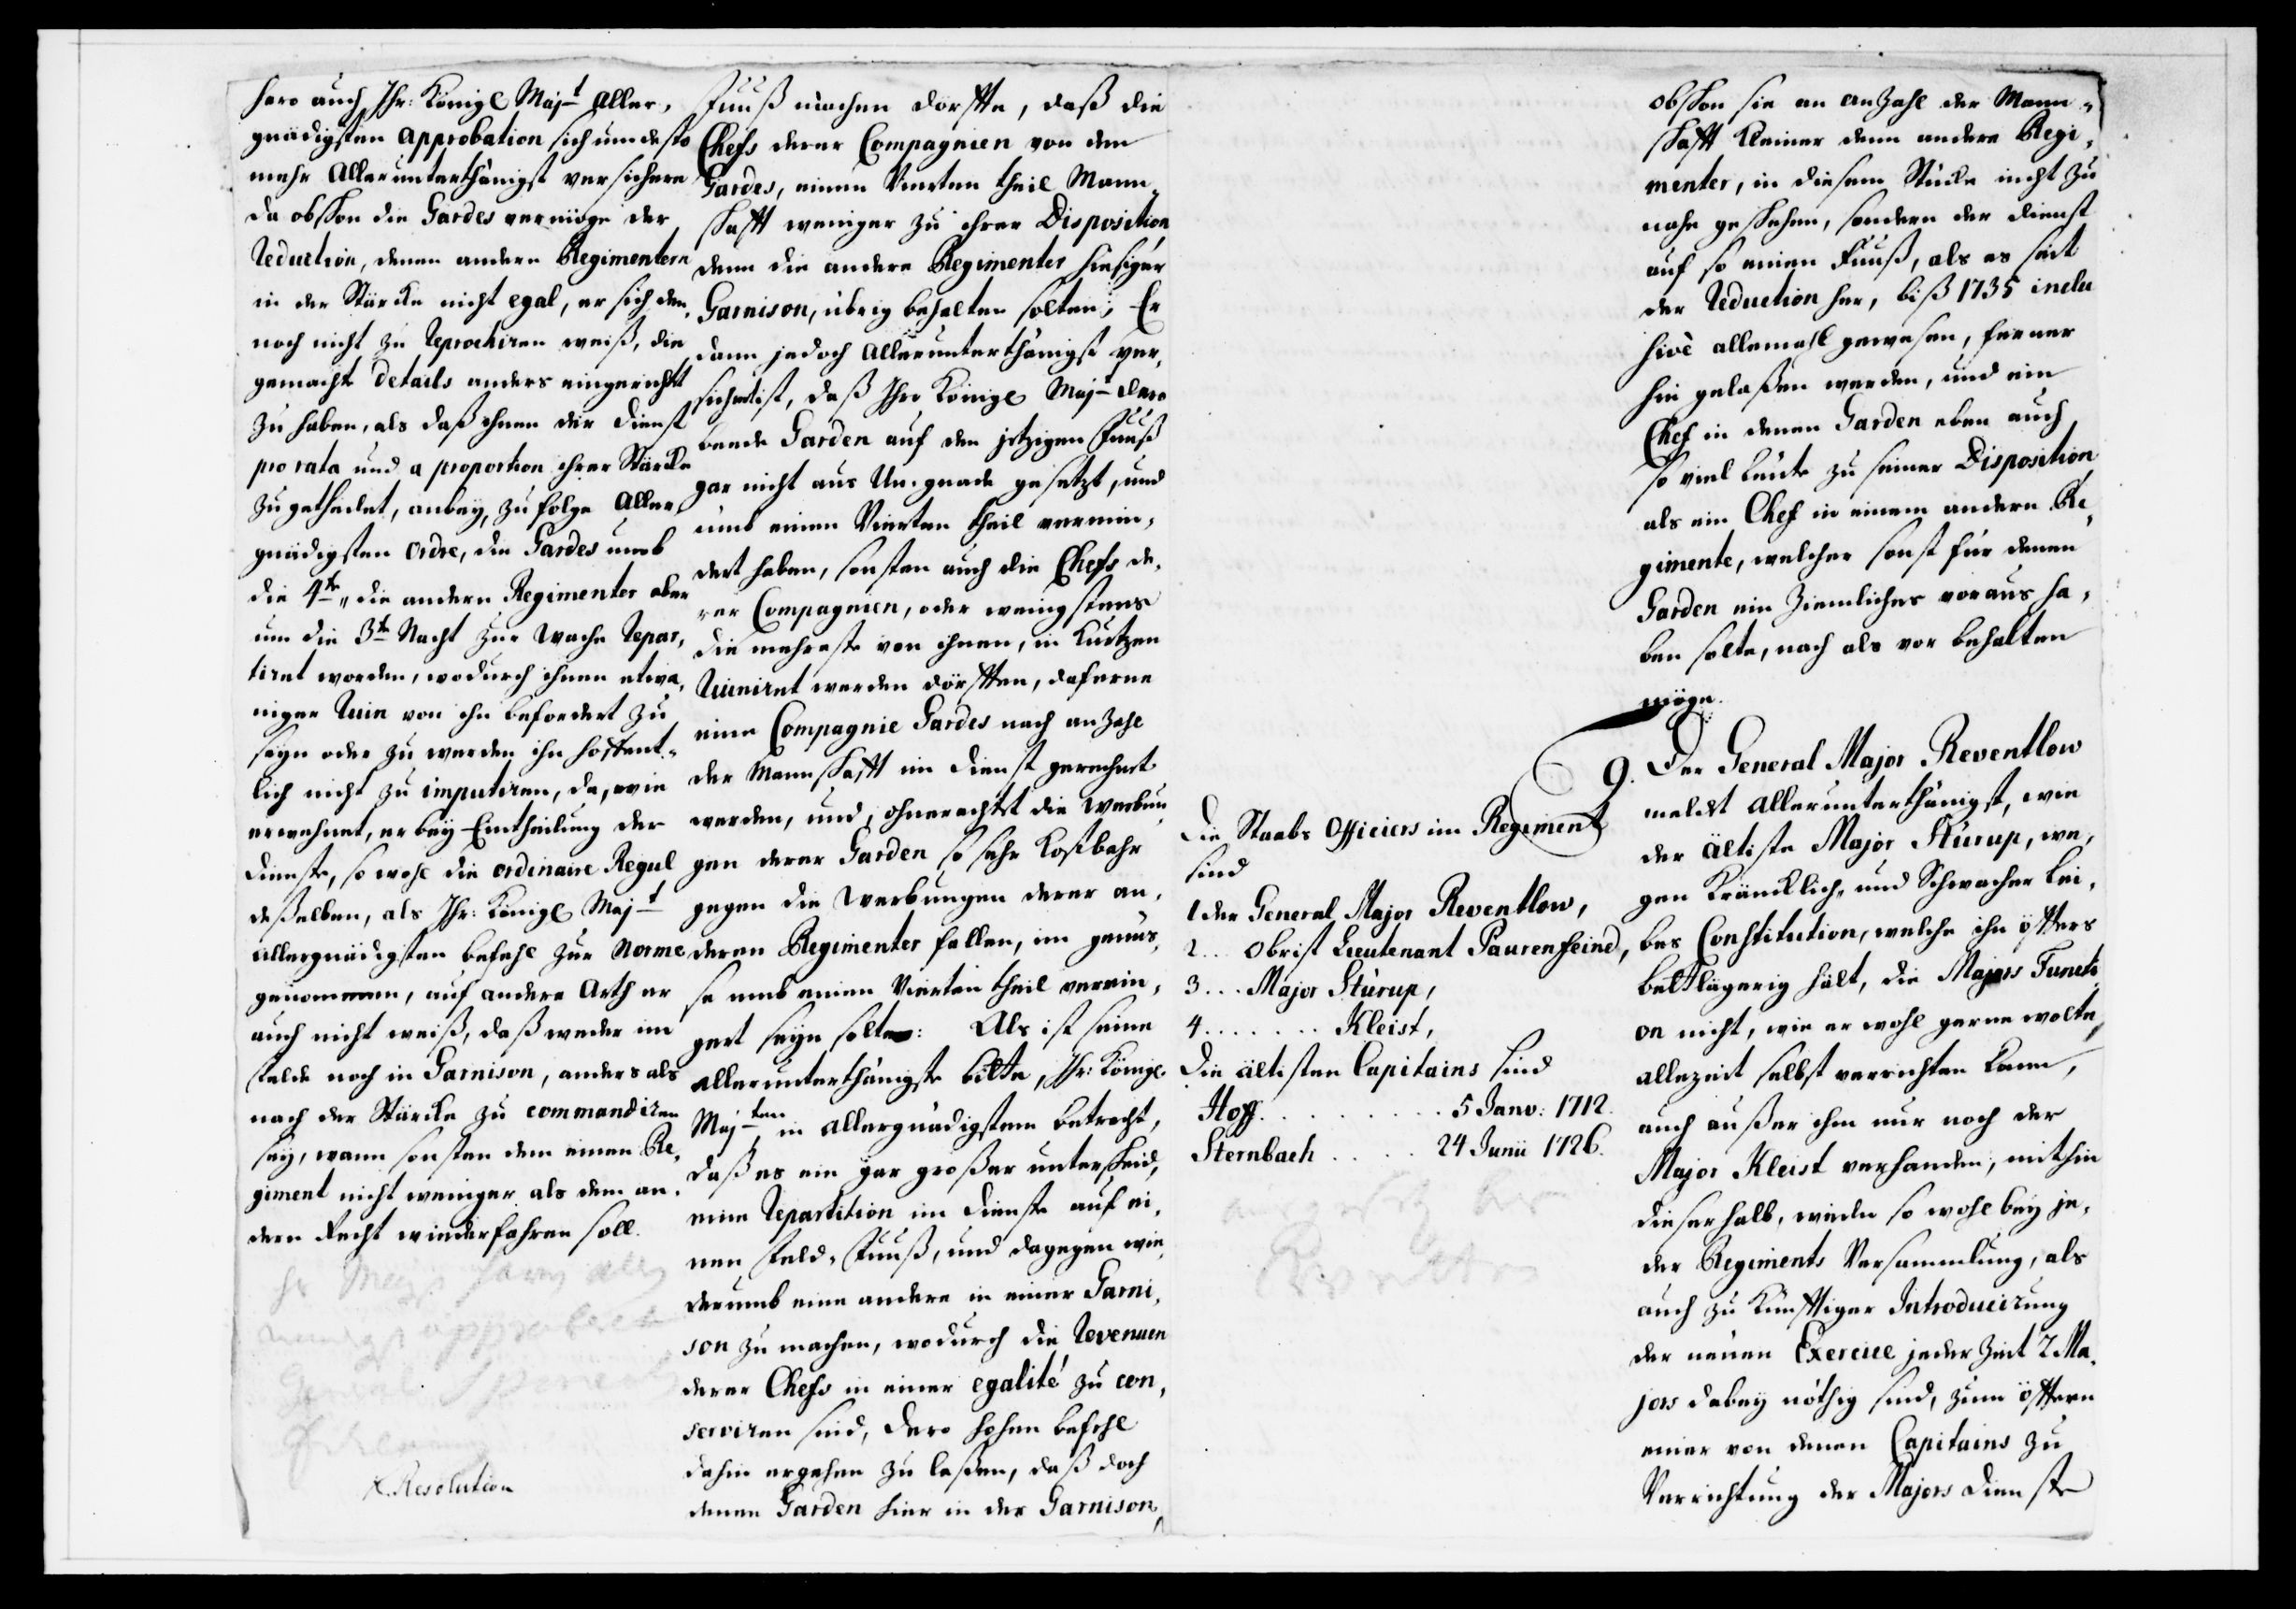 hero auch Ihr: Königl Majt Aller,
gnädigsten approbation sich umdesto
mehr Allerunterthänigst versichere
da obschon die Gardes vermöge der
Reduction, denen andern Regimentern
in der Stärcke nicht egal, er sich den,
noch nicht zu Reprochiren weiß, die
gemachte details anders eingerichtet
zu haben, als daß ihnen der Dienst
pro rata und a proportion ihrer Stärcke
zugetheilet, anbey, zufolge Aller
gnädigsten Ordre, die Gardes umb
die 4te, die andern Regimenter aber
um die 3te Nacht zur Wache Repar,
tiret worden, wodurch ihnen etwa,
niger Ruin von ihn befordert zu
seyn oder zu werden ihn hoffent,
lich nicht zu imputiren, da, wie
erwehnet, er bey Eintheilung der
Dienste, so wohl die ordinaire Regul
deßelben, als Ihr: Königl Majt
allergnädigsten befehl zur Norme
genommen, auf andere Arth er
auch nicht weiß, daß weder im
Felde noch in Garnison, anders als
nach der Stärcke zu commandiren
sey, wann sonsten dem einen Re,
giment nicht weniger als dem an,
dern Recht wiederfahren soll.
approbiret
General
X. Resolution
Fuuß machen dörffte, daß die
Chefs derer Compagnien von den
Gardes, einen Vierten theil Mann,
schafft weniger zu ihrer Disposition
denn die andere Regimenter hiesiger
Garnison, übrig behalten solten; Er
dann jedoch Allerunterthänigst ver,
sichert ist, daß Ihro Königl Majt dero
beede Garden auf den jetzigen Fuuß
gar nicht aus Un-gnade gesetzt, und
umb einen Vierten theil vermin,
dert haben, sonsten auch die Chefs de,
rer Compagnien, oder wenigstens
die mehreste von ihnen, in kurtzen
Ruiniret werden dörfften, daferne
eine Compagnie Gardes nach anzahl
der Mannschafft im Dienst gerechnet
werden, und, ohnerachtet die Werbun,
gen derer Garden so sehr kostbahr
gegen die Werbungen derer an,
deren Regimenter fallen, im genus,
se umb einen Vierten theil verrin,
gert seyn solte: Als ist seine
allerunterthänigste bitte, Ihr: Königl
Majten in allergnädigstem betracht,
daß es ein gar großer unterscheid,
eine Repartition im Dienste auf ei,
nen Feld-Fuuß, und dagegen wie,
derumb eine andere in einer Garni,
son zu machen, wodurch die Revenuen
derer Chefs in einer egalité zu con,
serviren sind, dero hohen befehl
dahin ergehen zu laßen, daß doch
denen Garden hier in der Garnison,
Die Staabs Officiers im Regiment
sind
1 der General Major Reventlow,
2... Obrist Lieutenant Paurenfeind,
3... Major Stürup,
4....... Kleist,
Die ältisten Capitains sind
Hoff.......... 5 Janv: 1712.
Sternbach..... 24 Junii 1726.
obschon sie an anzahl der Mann,
schafft kleiner denn andere Regi,
menter, in diesem Stücke nicht zu
nahe geschehen, sondern der Dienst
auf so einen Fuuß, als es seit
der Reduction her, biß 1735 inclu
sivè allemahl gewesen, ferner
hin gelaßen werden, und ein
Chef in denen Garden eben auch
so viel Leute zu seiner Disposition
als ein Chef in einem andern Re,
gimente, welcher sonst für denen
Garden ein Ziemliches voraus ha,
ben solte, nach als vor behalten
möge.
9. Der General Major Reventlow
meldet Allerunterthänigst, wie
der ältiste Major Stürup, we,
gen Kräncklich- und Schwacher Lei,
bes Constitution, welche ihn öffters
bettlägerig hält, die Majors Functi
on nicht, wie er wohl gerne wolte,
allezeit selbst verrichten kann,
auch außer ihm nur noch der
Major Kleist verhanden, mithin
dieserhalb, wieder so wohl bey je,
der Regiments Versammlung, als
auch zu künfftiger Introducirung
der neuen Exercice jeder Zeit 2 Ma,
jors dabey nöthig sind, zum öfftern
einer von denen Capitains zu
Verrichtung der Majors Dienste